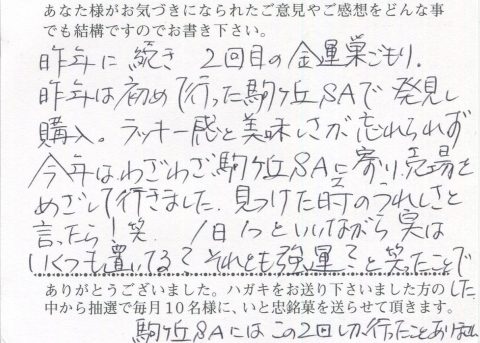 あなた様がお気づきになられたご意見やご感想をどんな事
でも結構ですのでお書き下さい。
昨年に続き 2回目の金運巣ごもり.
昨年は初めて行った駒ヶ丘SAで発見し
購入。ラッキー感と美味しさが忘れられず
今年はわざわざ、駒ヶ丘SAに寄り、売場を
めざして行きました. 見つけた時のうれしさと
言ったら！笑 1日1つといいながら実は
いくつも置いてる？それとも強運？と笑ったことで
ありがとうございました。ハガキをお送り下さいました方の した
中から抽選で毎月10名様に、いと忠銘菓を送らせて頂きます。
駒ヶ丘SAにはこの2回しか行ったことありません